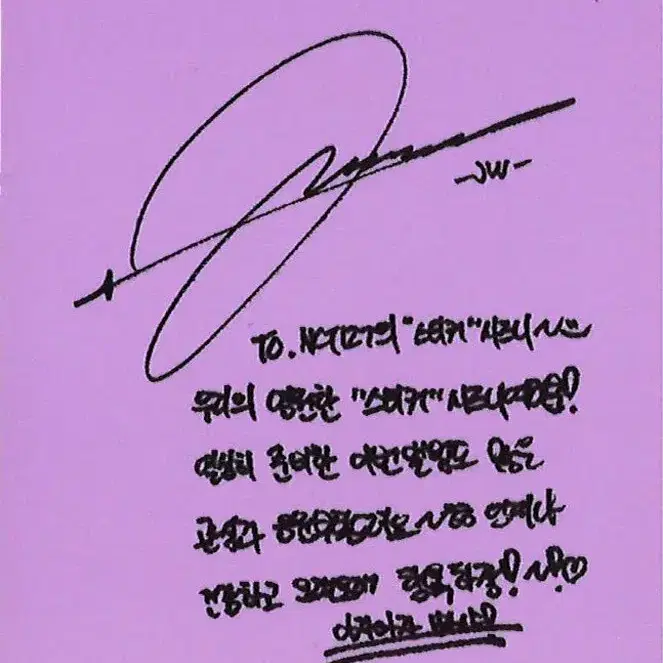 -JW-
TO. NCT127의 "스티커" 시즈니~
우리의 영원한 "스티커" 시즈니여러분!
열심히 준비한 이번앨범도 많은
관심과 응원부탁드려요~ 언제나
건강하고 오래오래 행복하장!~!♡